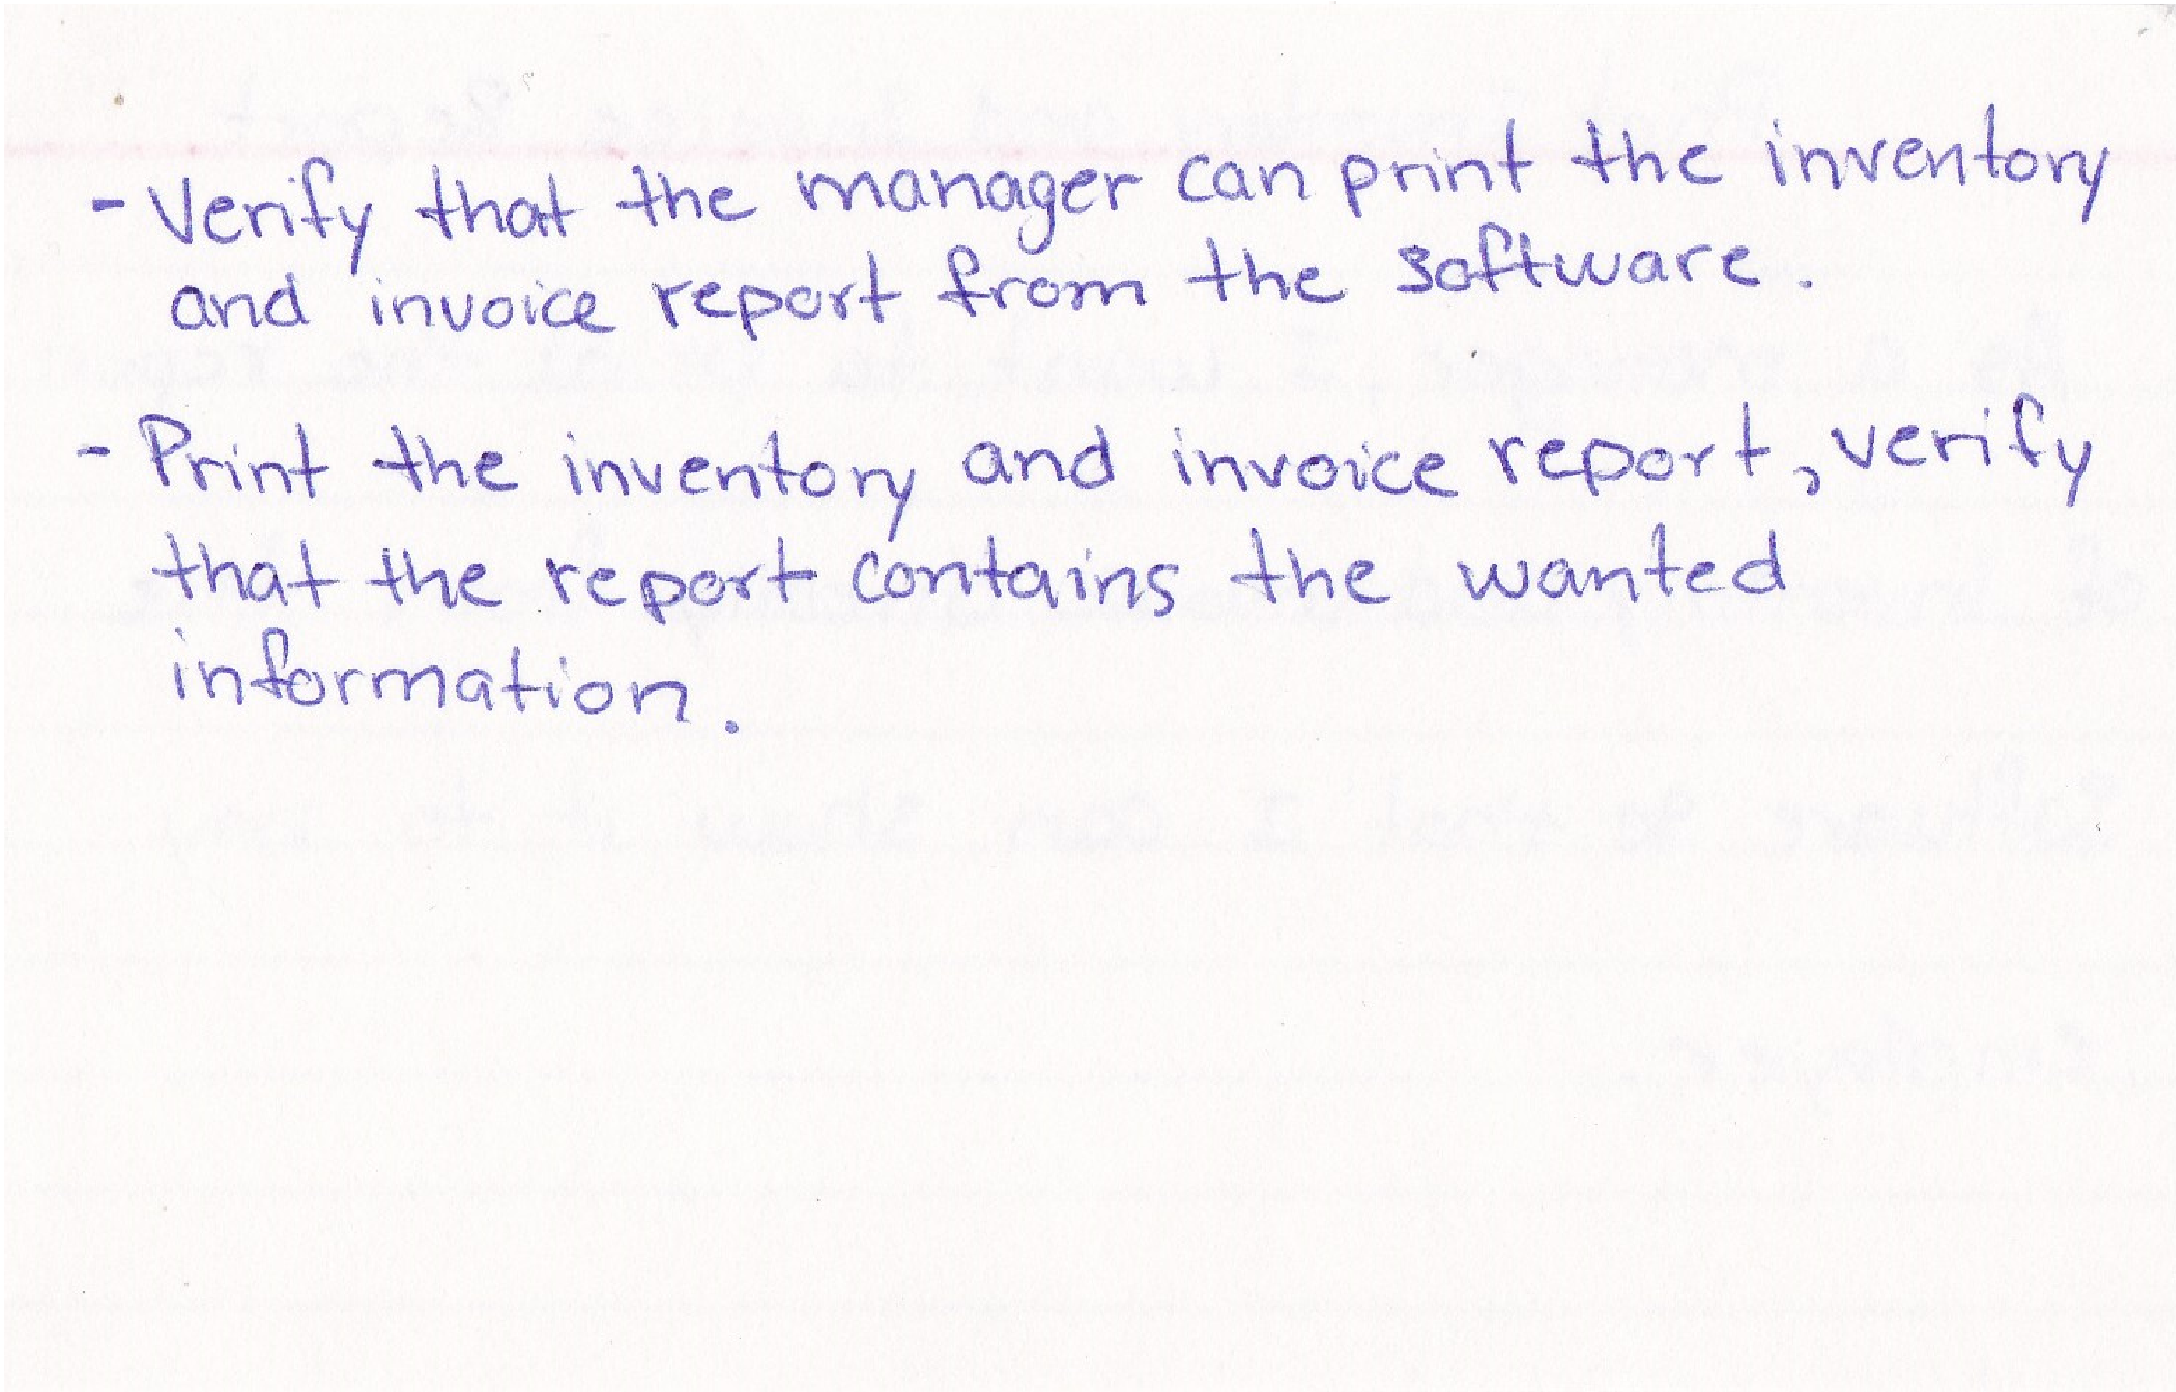 - Verify that the manager can print the inventory
and invoice report from the software.
- Print the inventory and invoice report, verify
that the report contains the wanted
information.